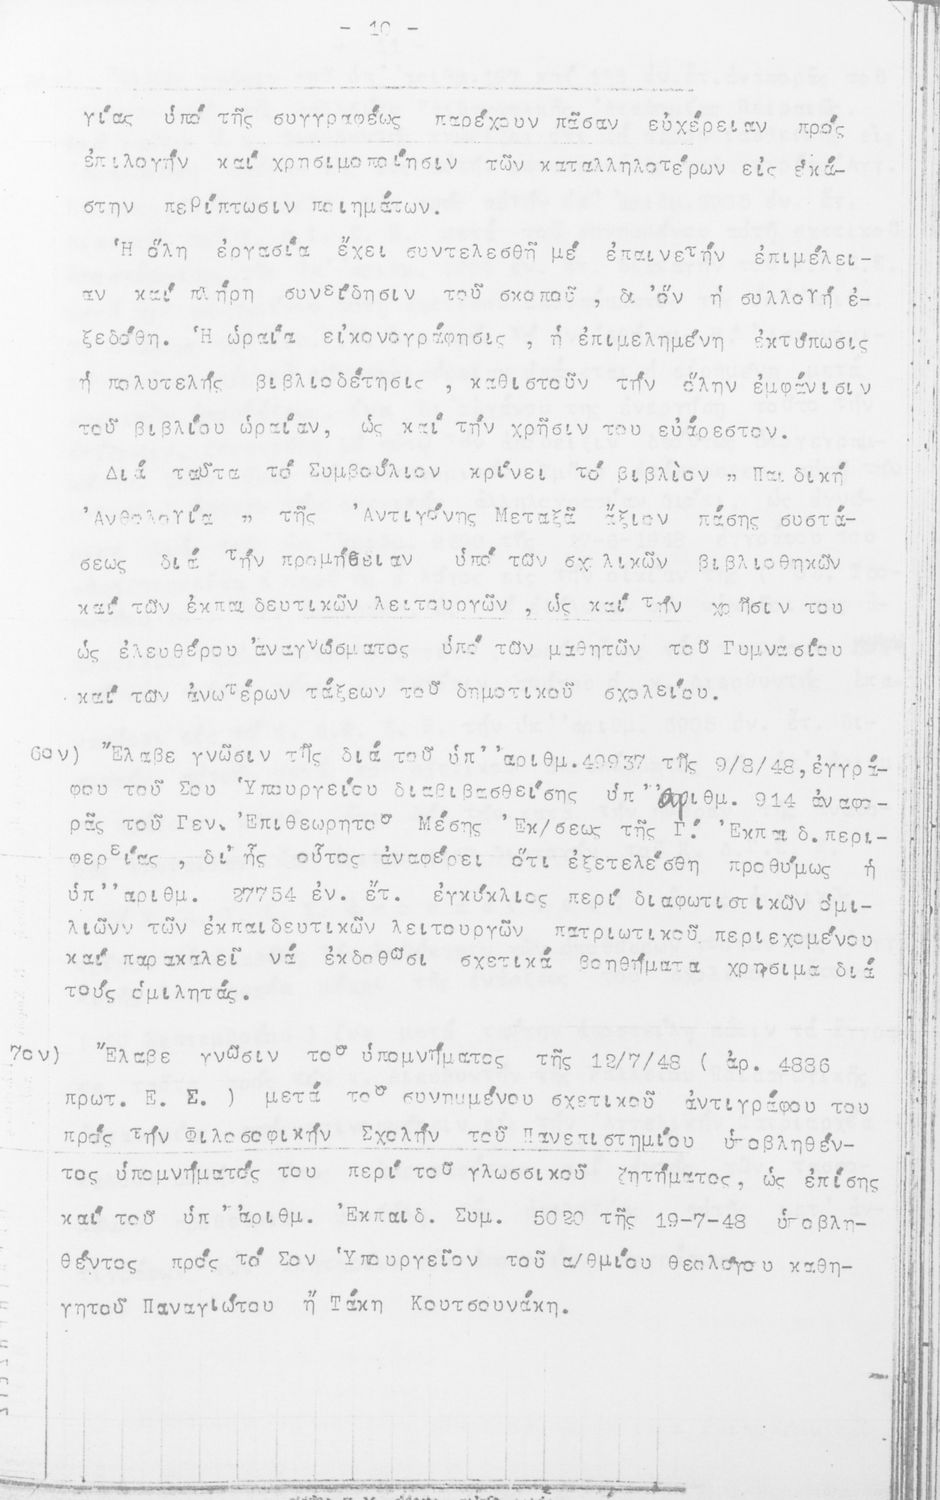 - 10 -
γίας ὑπό τῆς συγγραφέως παρέχουν πᾶσαν εὐχέρειαν πρός
ἐπιλογήν καί χρησιμοποίησιν τῶν καταλληλοτέρων εἰς ἑκά-
στην περίπτωσιν ποιημάτων.
Ἡ ὅλη ἐργασία ἔχει συντελεσθῆ μέ ἐπαινετήν ἐπιμέλει-
αν καί πλήρη συνείδησιν τοῦ σκοποῦ, δι'ὅν ἡ συλλογή ἐ-
ξεδόθη. Ἡ ὡραία εἰκονογράφησις, ἡ ἐπιμελημένη ἐκτύπωσις
ἡ πολυτελής βιβλιοδέτησις, καθιστοῦν τήν ὅλην ἐμφάνισιν
τοῦ βιβλίου ὡραίαν, ὡς καί τήν χρῆσιν του εὐάρεστον.
Διά ταῦτα τό Συμβούλιον κρίνει τό βιβλὶον " Παιδική
Ἀνθολογία " τῆς Ἀντιγόνης Μεταξᾶ ἄξιον πάσης συστά-
σεως διά τήν προμήθειαν ὑπό τῶν σχολικῶν βιβλιοθηκῶν
καί τῶν ἐκπαιδευτικῶν λειτουργῶν, ὡς καί τήν χρῆσιν του
ὡς ἐλευθέρου ἀναγνώσματος ὑπό τῶν μαθητῶν τοῦ Γυμνασίου
καί των ἀνωτέρων τάξεων τοῦ δημοτικοῦ σχολείου.
6ον) Ἔλαβε γνῶσιν τῆς διά τοῦ ὑπ' ἀριθμ.49937 τῆς 9/8/48, ἐγγρά-
φου τοῦ Σου Ὑπουργείου διαβιβασθείσης ὑπ' ἀριθμ. 914 ἀναφο-
ρᾶς τοῦ Γεν. Ἐπιθεωρητοῦ Μέσης Ἐκ/σεως τῆς Γ! Ἐκπαιδ.περι-
φερείας, δι' ἧς οὗτος ἀναφέρει ὅτι ἐξετελέσθη προθύμως ἡ
ὑπ' ἀριθμ. 27754 ἐν. ἔτ. ἐγκύκλιος περί διαφωτιστικῶν ὁμι-
λιῶνν τῶν ἐκπαιδευτικῶν λειτουργῶν πατριωτικοῦ περιεχομένου
καί παρακαλεῖ νά ἐκδοθῶσι σχετικά βοηθήματα χρησιμα διά
τούς ὁμιλητάς.
7ον) Ἔλαβε γνῶσιν τοῦ ὑπομνήματος τῆς 12/7/48 ( ἀρ. 4886
πρωτ. Ε. Σ. ) μετά τοῦ συνημμένου σχετικοῦ ἀντιγράφου του
πρός τήν Φιλοσοφικήν Σχολήν τοῦ Πανεπιστημίου ὑποβληθέν-
τος ὑπομνήματός του περί τοῦ γλωσσικοῦ ζητήματος, ὡς ἐπίσης
καί τοῦ ὑπ' ἀριθμ. Ἐκπαιδ. Συμ. 5020 τῆς 19-7-48 ὑποβλη-
θέντος πρός τό Σον Ὑπουργεῖον τοῦ α/θμίου θεολόγου καθη-
γητοῦ Παναγιώτου ἤ Τάκη Κουτσουνάκη.